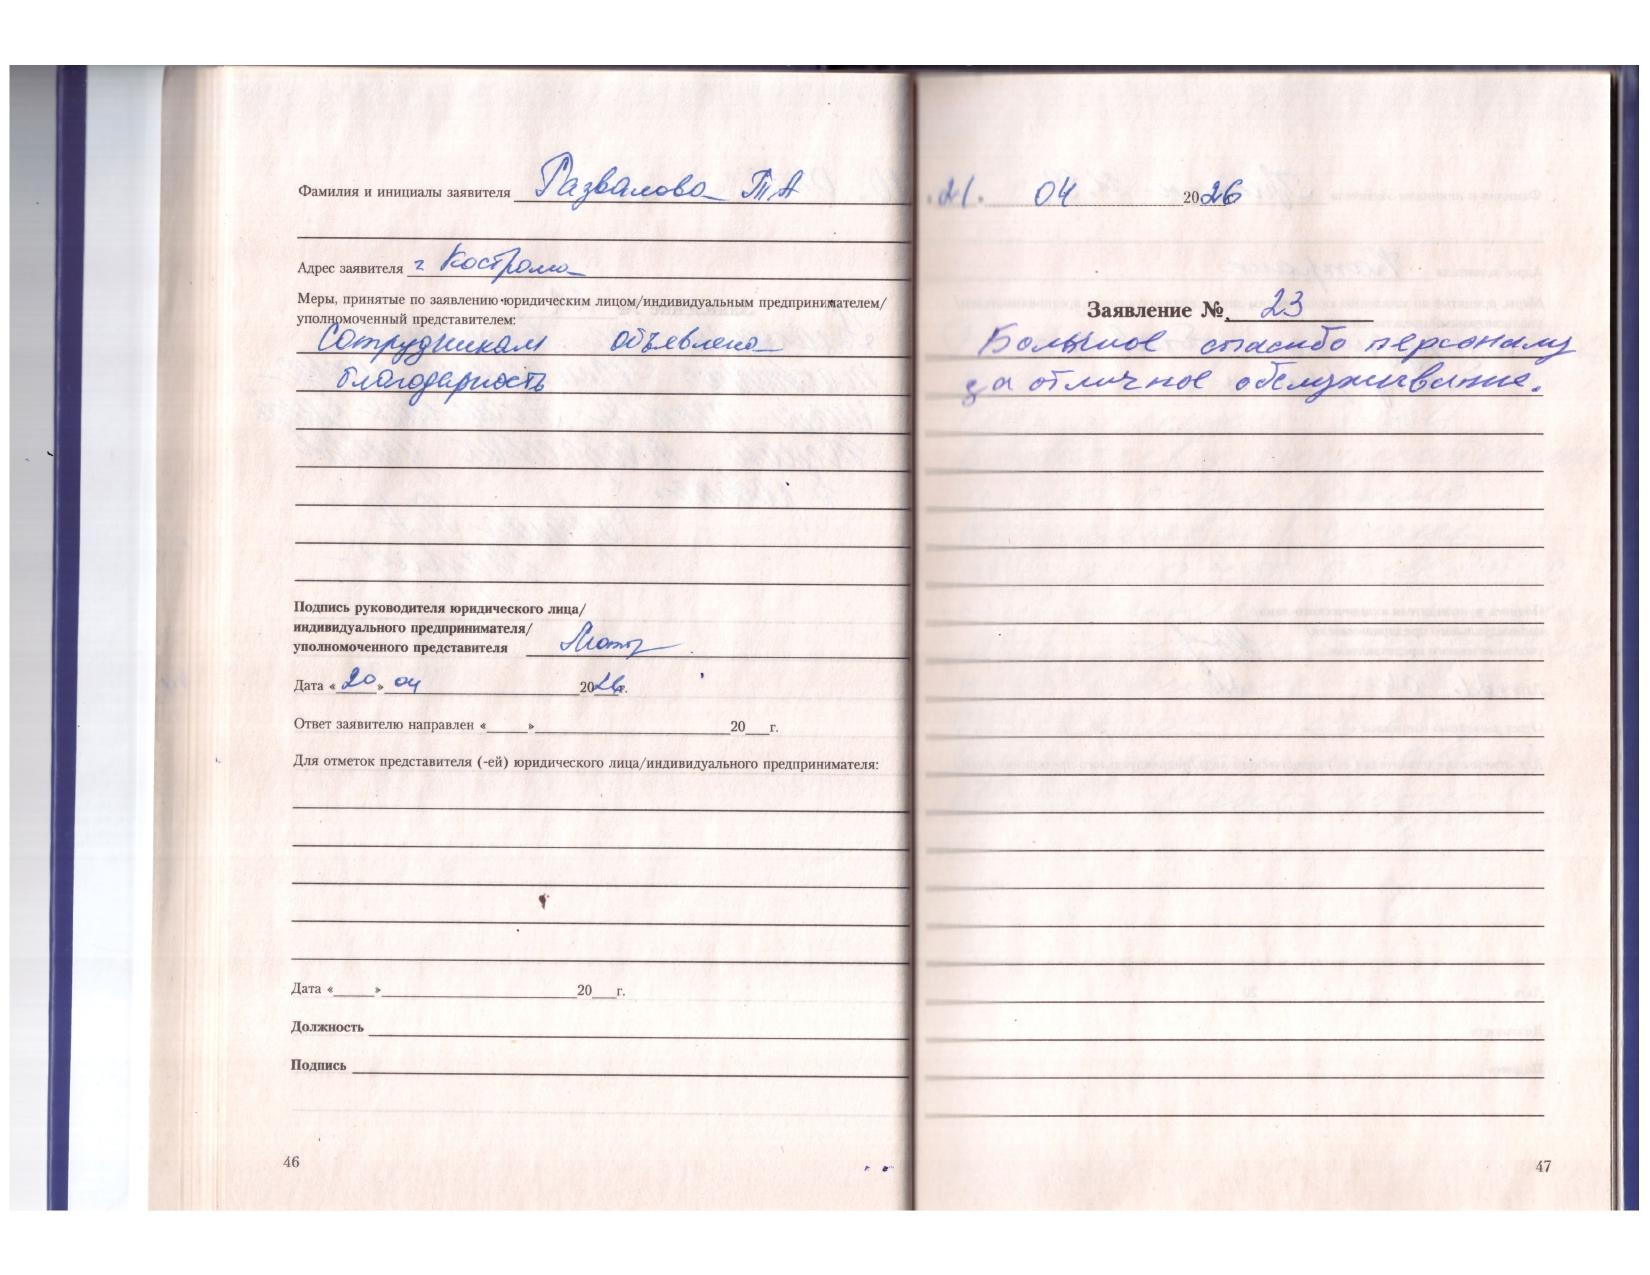 Фамилия и инициалы заявителя Развалова ТА
Адрес заявителя г Кострома
Меры, принятые по заявлению юридическим лицом/индивидуальным предпринимателем/
уполномоченный представителем:
Сотрудникам объявлена
благодарность
Подпись руководителя юридического лица/
индивидуального предпринимателя/
уполномоченного представителя
Дата «20» 04 2026г.
Ответ заявителю направлен «____» 20__г.
Для отметок представителя (-ей) юридического лица/индивидуального предпринимателя:
Дата «____» 20__г.
Должность
Подпись
46
21. 04 2026
Заявление № 23
Большое спасибо персоналу
за отличное обслуживание.
47